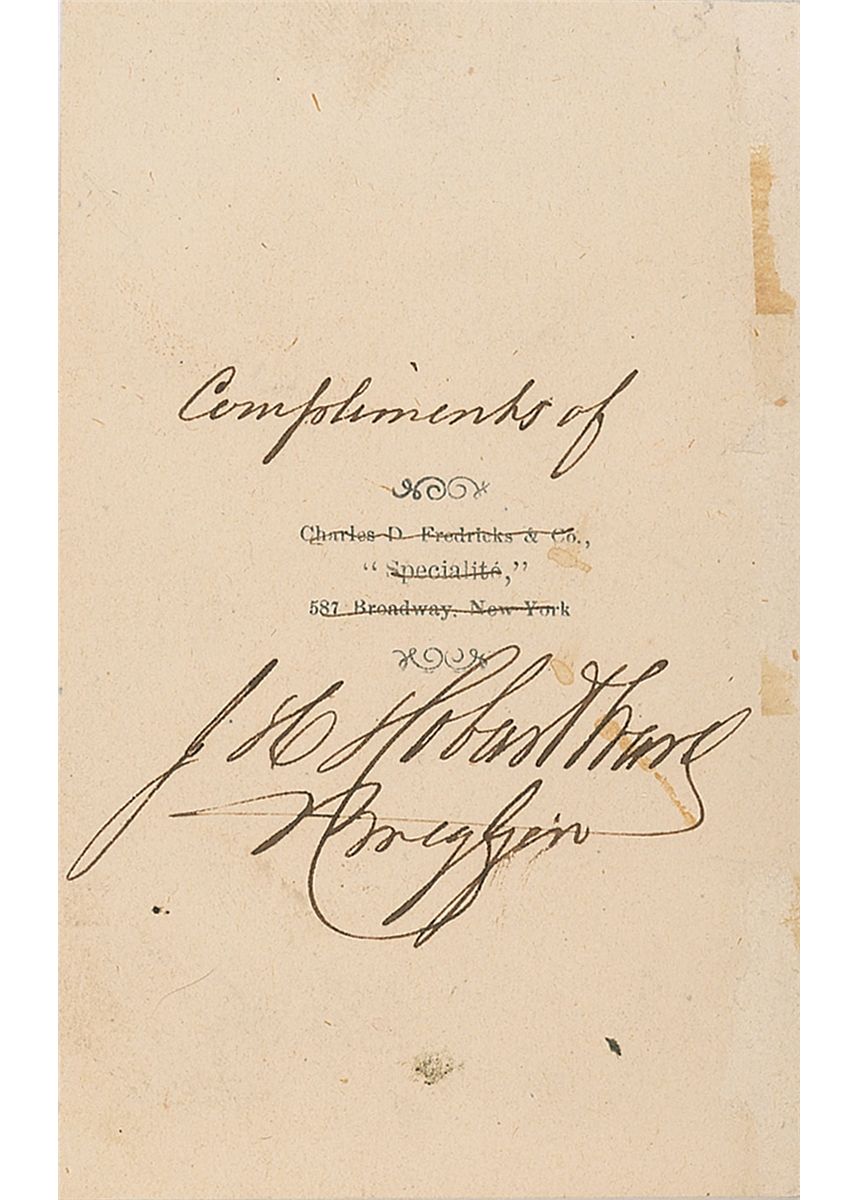 Compliments of
Charles D. Fredricks & Co.,
"Specialité,"
587 Broadway, New York
J H Hobart Ward